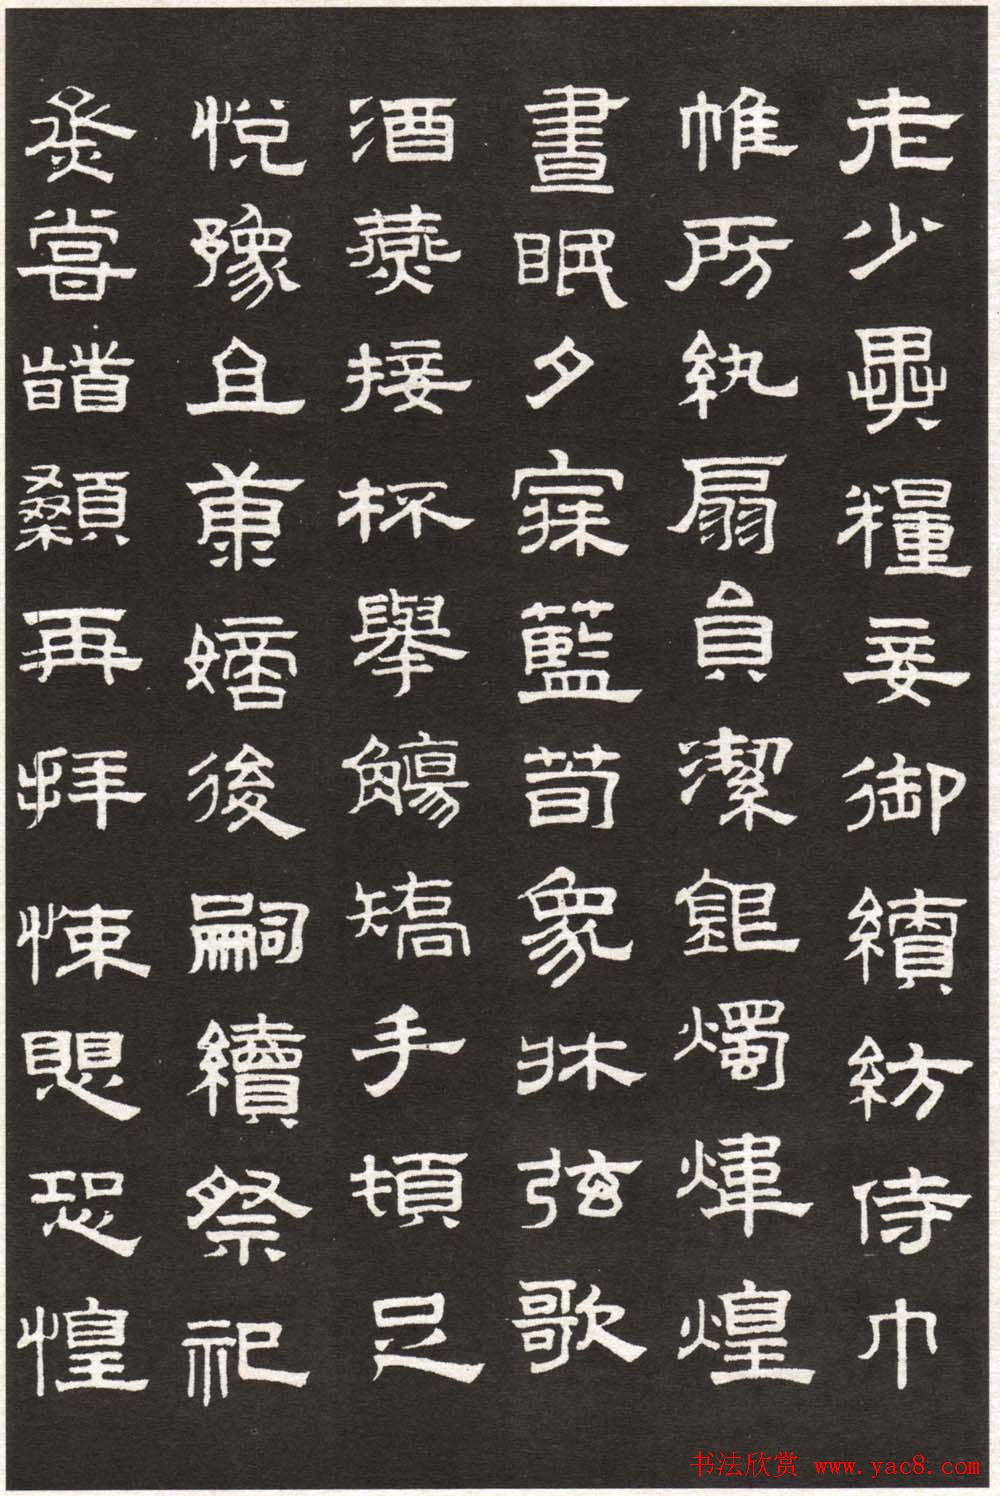 老少異糧妾御績紡侍巾
帷房紈扇員潔銀燭煒煌
晝眠夕寐藍荀象牀弦歌
酒燕接杯舉觴矯手頓足
悅豫且康嫡後嗣續祭祀
烝嘗稽顙再拜悚懼恐惶
书法欣赏 www.yac8.com